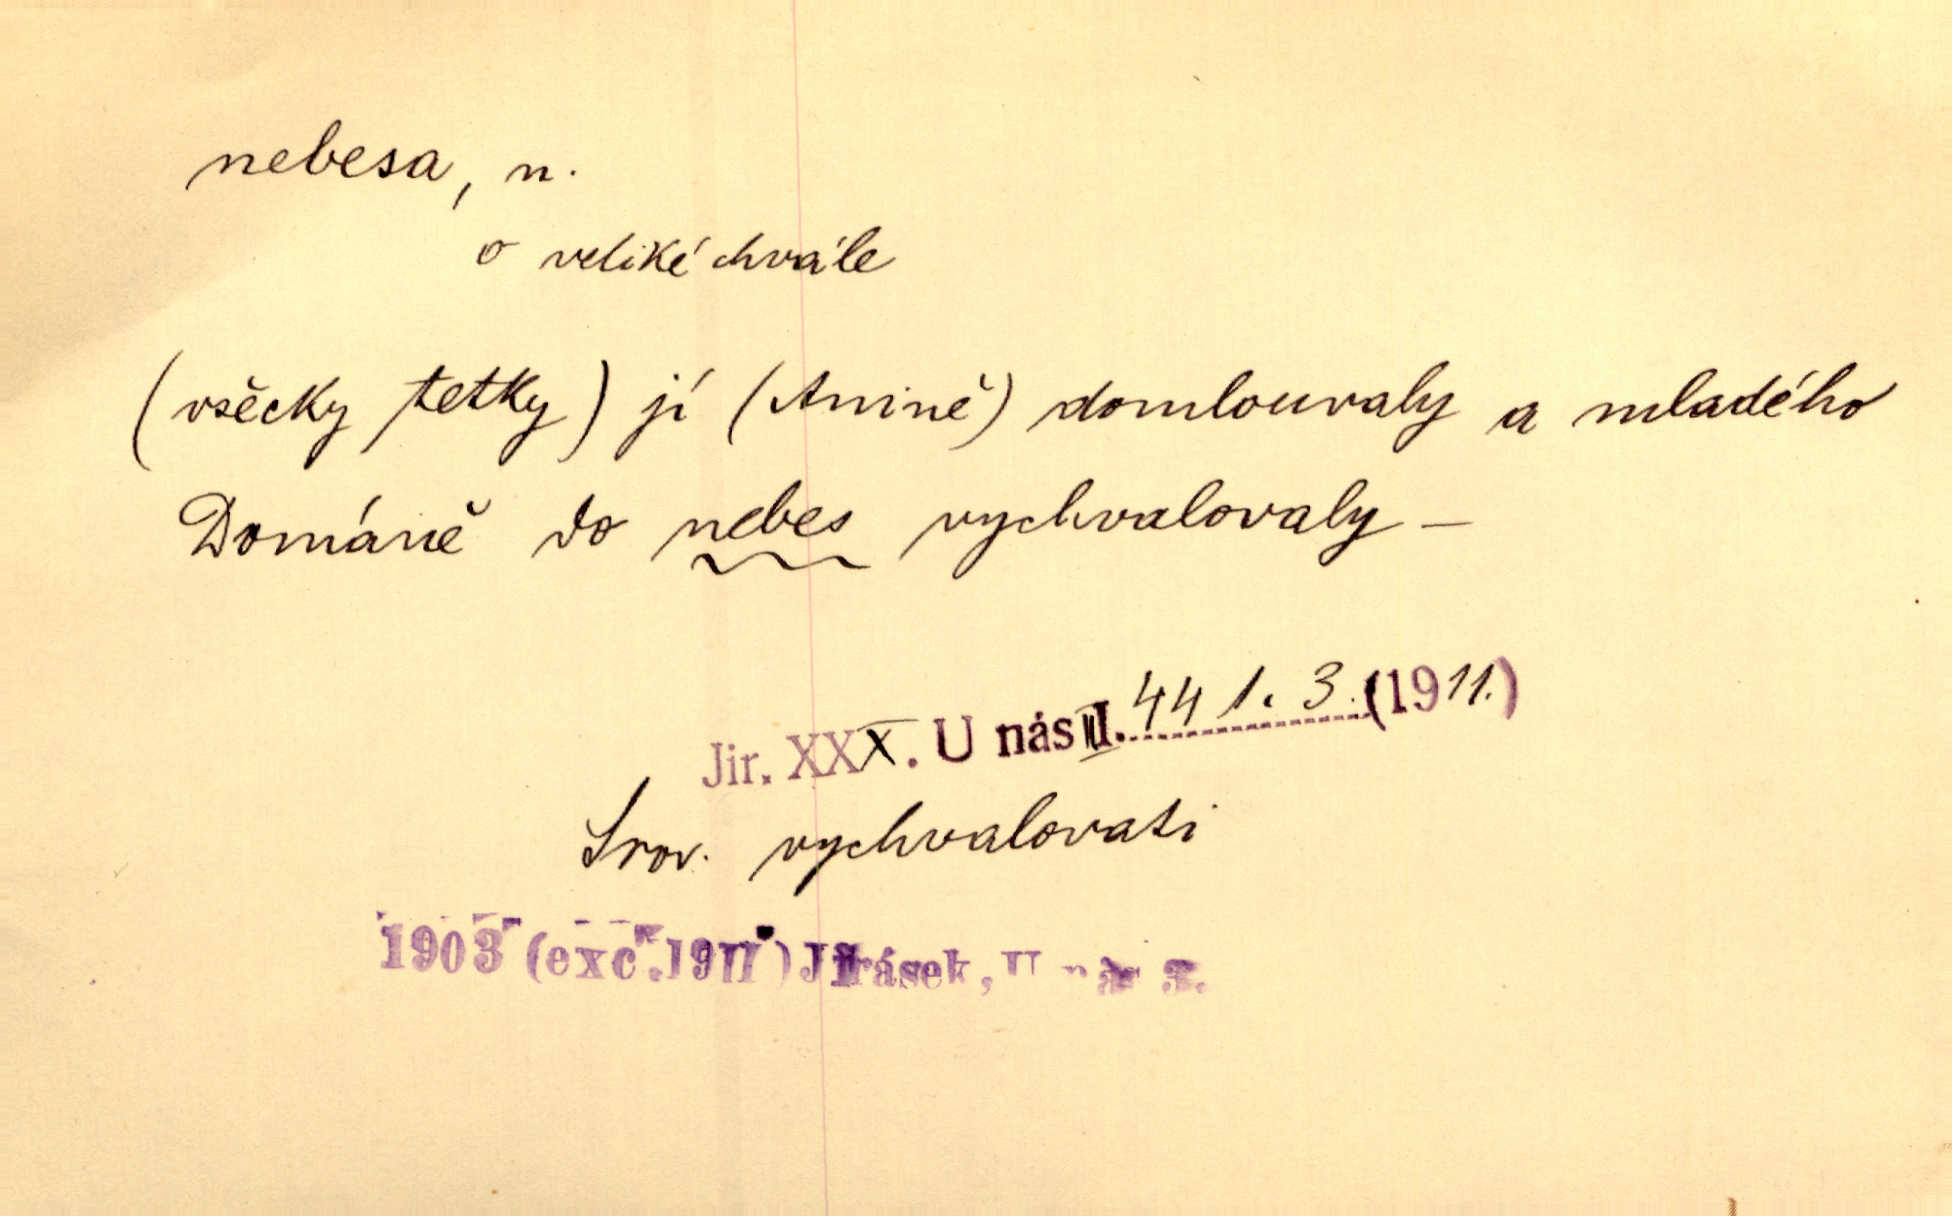 nebesa, n.
o veliké chvále
(všecky tetky) jí (Anině) domlouvaly a mladého
Dománě do nebes vychvalovaly –
Jir. XXX. U nás III. 441. 3. (1911.)
Srov. vychvalovati
1903 (exc. 1911) Jirásek, U nás 3.